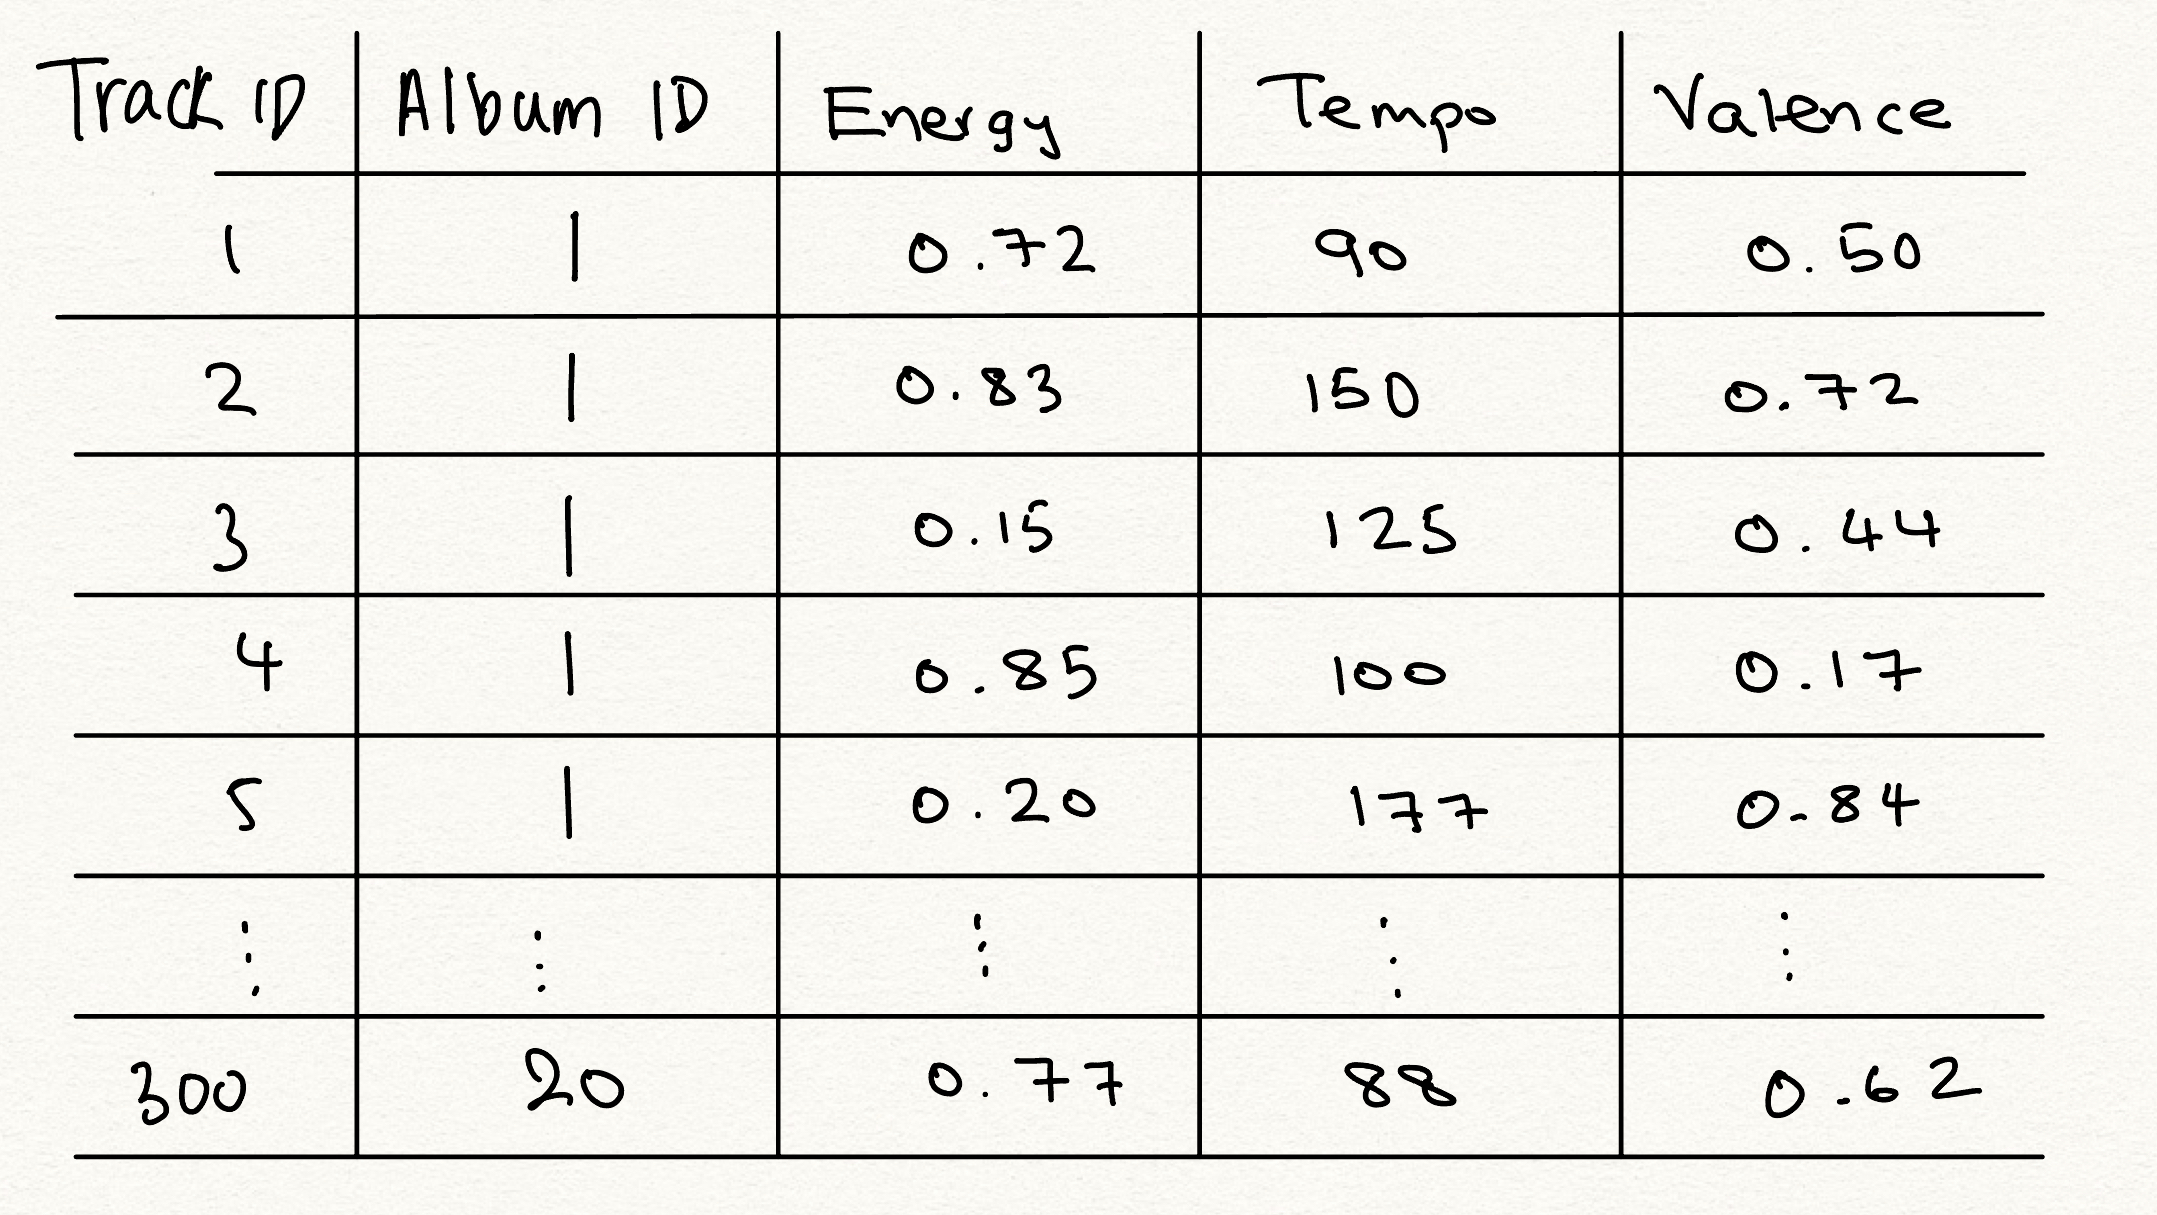 Track ID Album ID Energy Tempo Valence
1 1 0.72 90 0.50
2 1 0.83 150 0.72
3 1 0.15 125 0.44
4 1 0.85 100 0.17
5 1 0.20 177 0.84
⋮ ⋮ ⋮ ⋮ ⋮
300 20 0.77 88 0.62